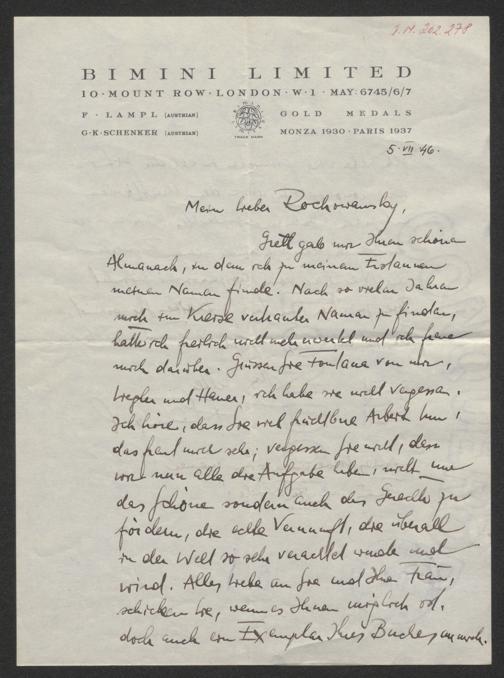 J.N. 202.278
BIMINI LIMITED
10·MOUNT ROW·LONDON·W·1·MAY·6745/6/7
F·LAMPL (AUSTRIAN) GOLD MEDALS
G·K·SCHENKER (AUSTRIAN) MONZA 1930·PARIS 1937
TRADE MARK
5·VII 46.
Mein lieber Rochowansky,
Gretl gab mir Ihren schönen
Almanach, in dem ich zu meinem Erstaunen
meinen Namen finde. Nach so vielen Jahren
mich im Kreise vertrauter Namen zu finden,
hätte ich freilich nicht mehr erwartet und ich freue
mich darüber. Grüssen Sie Fontana von mir,
und Hauer, ich habe sie nicht vergessen.
Ich höre, dass Sie viel fruchtbare Arbeit tun,
das freut mich sehr; vergessen Sie nicht, dass
wir nun alle die Aufgabe haben, nicht nur
das Schöne sondern auch das Gute zu
fördern, die echte Vernunft, die überall
in der Welt so sehr verachtet wurde und
wird. Alles Liebe an Sie und Ihre Frau,
schicken Sie, wenn es Ihnen möglich ist,
doch auch ein Exemplar Ihres Buches an mich.